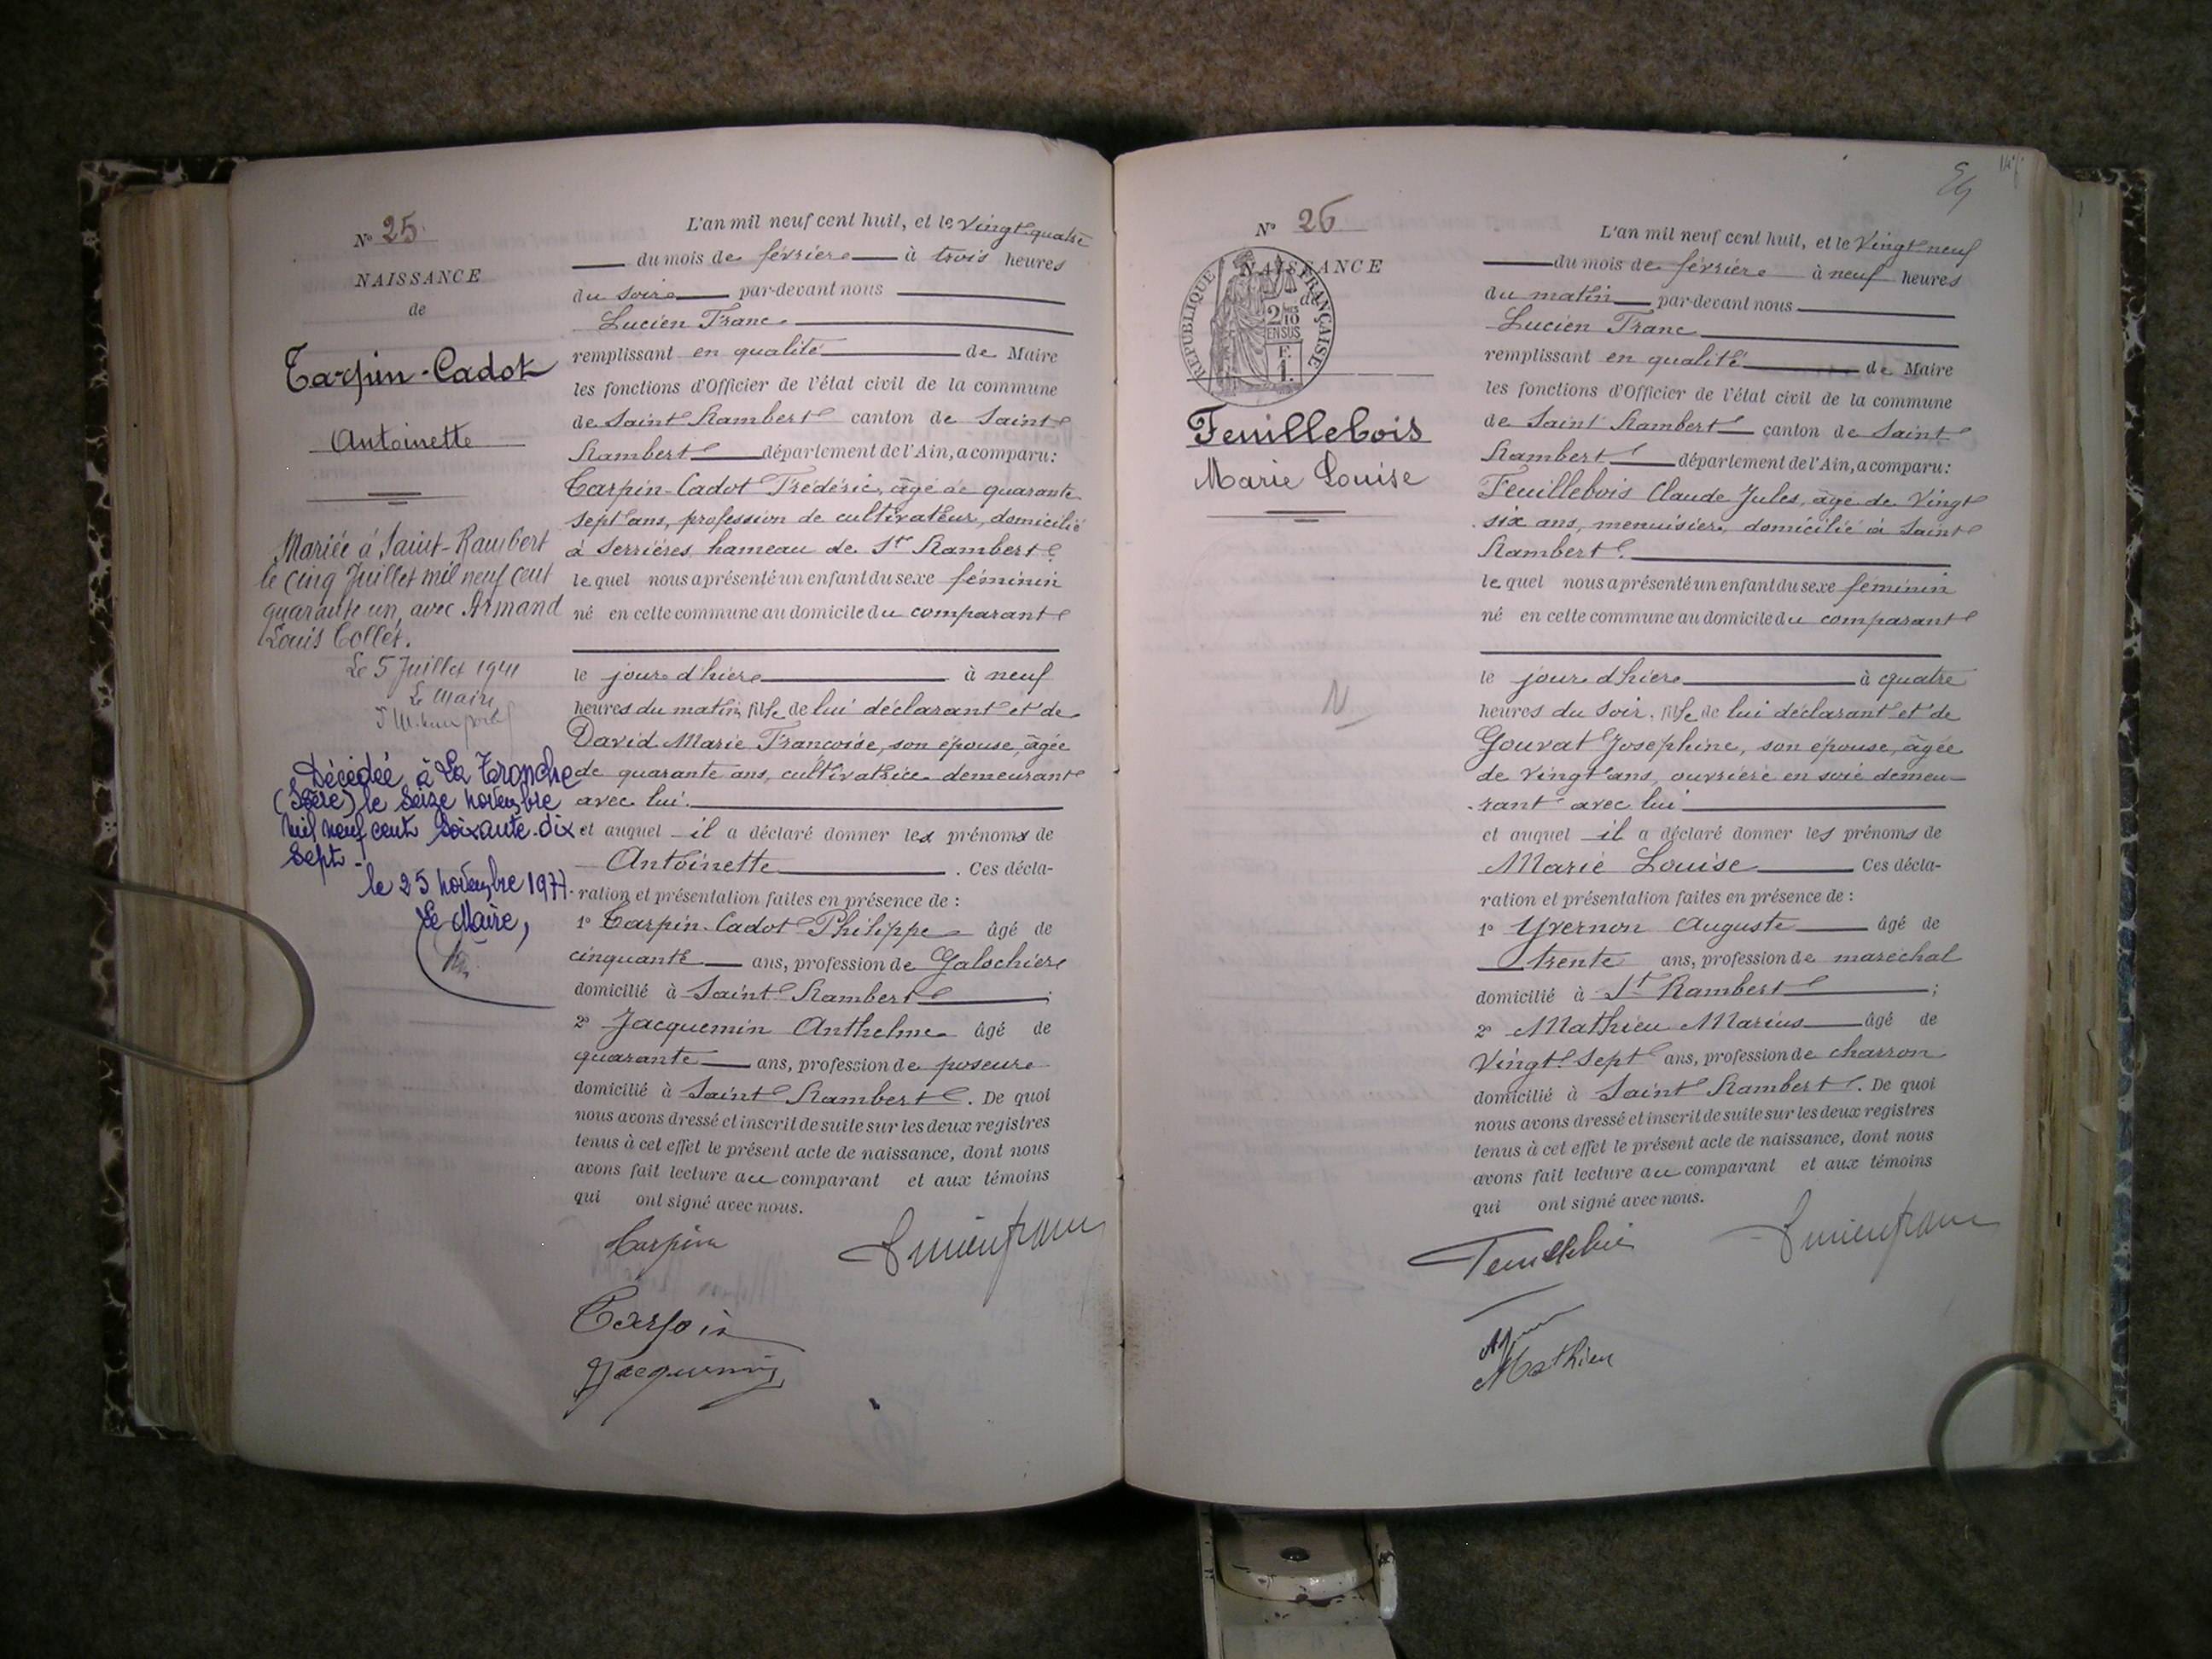 N° 25
NAISSANCE
de
Tarpin-Cadot
Antoinette
Mariée à Saint-Rambert
le cinq Juillet mil neuf cent
quarante un, avec Armand
Louis Collet.
Le 5 Juillet 1941
Le Maire
Décédée à La Tronche
(Isère) le seize novembre
mil neuf cent soixante-dix
sept.
le 25 novembre 1977.
Le Maire,
L'an mil neuf cent huit, et le vingt quatre
du mois de février à trois heures
du soir par-devant nous
Lucien Franc
remplissant en qualité de Maire
les fonctions d'Officier de l'état civil de la commune
de Saint Rambert canton de Saint
Rambert département de l'Ain, a comparu:
Tarpin-Cadot Frédéric, âgé de quarante
sept ans, profession de cultivateur, domicilié
à Serrières, hameau de St Rambert
lequel nous a présenté un enfant du sexe féminin
né en cette commune au domicile du comparant
le jour d'hier à neuf
heures du matin, fille de lui déclarant et de
David Marie Francoise, son épouse, âgée
de quarante ans, cultivatrice demeurant
avec lui.
et auquel il a déclaré donner les prénoms de
Antoinette . Ces décla-
ration et présentation faites en présence de :
1° Tarpin-Cadot Philippe âgé de
cinquante ans, profession de Galochier
domicilié à Saint Rambert ;
2° Jacquemin Anthelme âgé de
quarante ans, profession de poseur
domicilié à Saint Rambert. De quoi
nous avons dressé et inscrit de suite sur les deux registres
tenus à cet effet le présent acte de naissance, dont nous
avons fait lecture au comparant et aux témoins
qui ont signé avec nous.
Tarpin Lucien Franc
Tarpin
Jacquemin
N° 26
NAISSANCE
de
RÉPUBLIQUE FRANÇAISE
2/10
EN SUS
F.
1.
Feuillebois
Marie Louise
N
L'an mil neuf cent huit, et le vingt neuf
du mois de février à neuf heures
du matin par-devant nous
Lucien Franc
remplissant en qualité de Maire
les fonctions d'Officier de l'état civil de la commune
de Saint Rambert canton de Saint
Rambert département de l'Ain, a comparu:
Feuillebois Claude Jules, âgé de vingt
six ans, menuisier, domicilié à Saint
Rambert.
lequel nous a présenté un enfant du sexe féminin
né en cette commune au domicile du comparant
le jour d'hier à quatre
heures du soir, fille de lui déclarant et de
Gouvat Josephine, son épouse, âgée
de vingt ans, ouvrière en soie demeu-
rant avec lui
et auquel il a déclaré donner les prénoms de
Marie Louise Ces décla-
ration et présentation faites en présence de :
1° Yvernon Auguste âgé de
trente ans, profession de maréchal
domicilié à St Rambert ;
2° Mathieu Marius âgé de
Vingt-sept ans, profession de charron
domicilié à Saint Rambert. De quoi
nous avons dressé et inscrit de suite sur les deux registres
tenus à cet effet le présent acte de naissance, dont nous
avons fait lecture au comparant et aux témoins
qui ont signé avec nous.
Feuillebois Lucien Franc
Mathieu